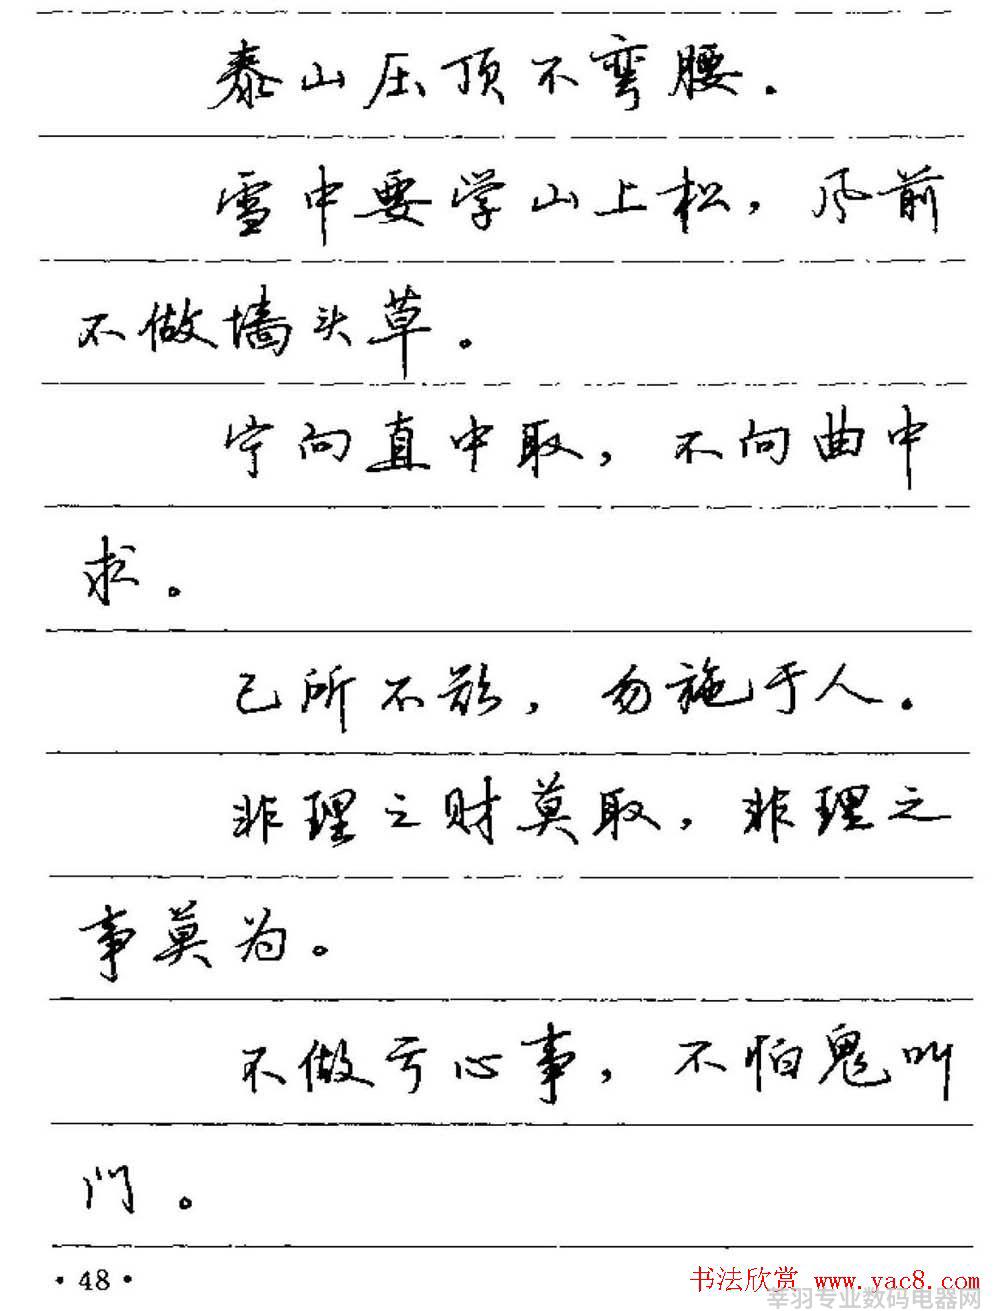 泰山压顶不弯腰.
雪中要学山上松，风前
不做墙头草。
宁向直中取，不向曲中
求。
己所不欲，勿施于人。
非理之财莫取，非理之
事莫为。
不做亏心事，不怕鬼叫
门。
·48·
书法欣赏 www.yac8.com
宰羽专业数码电器网